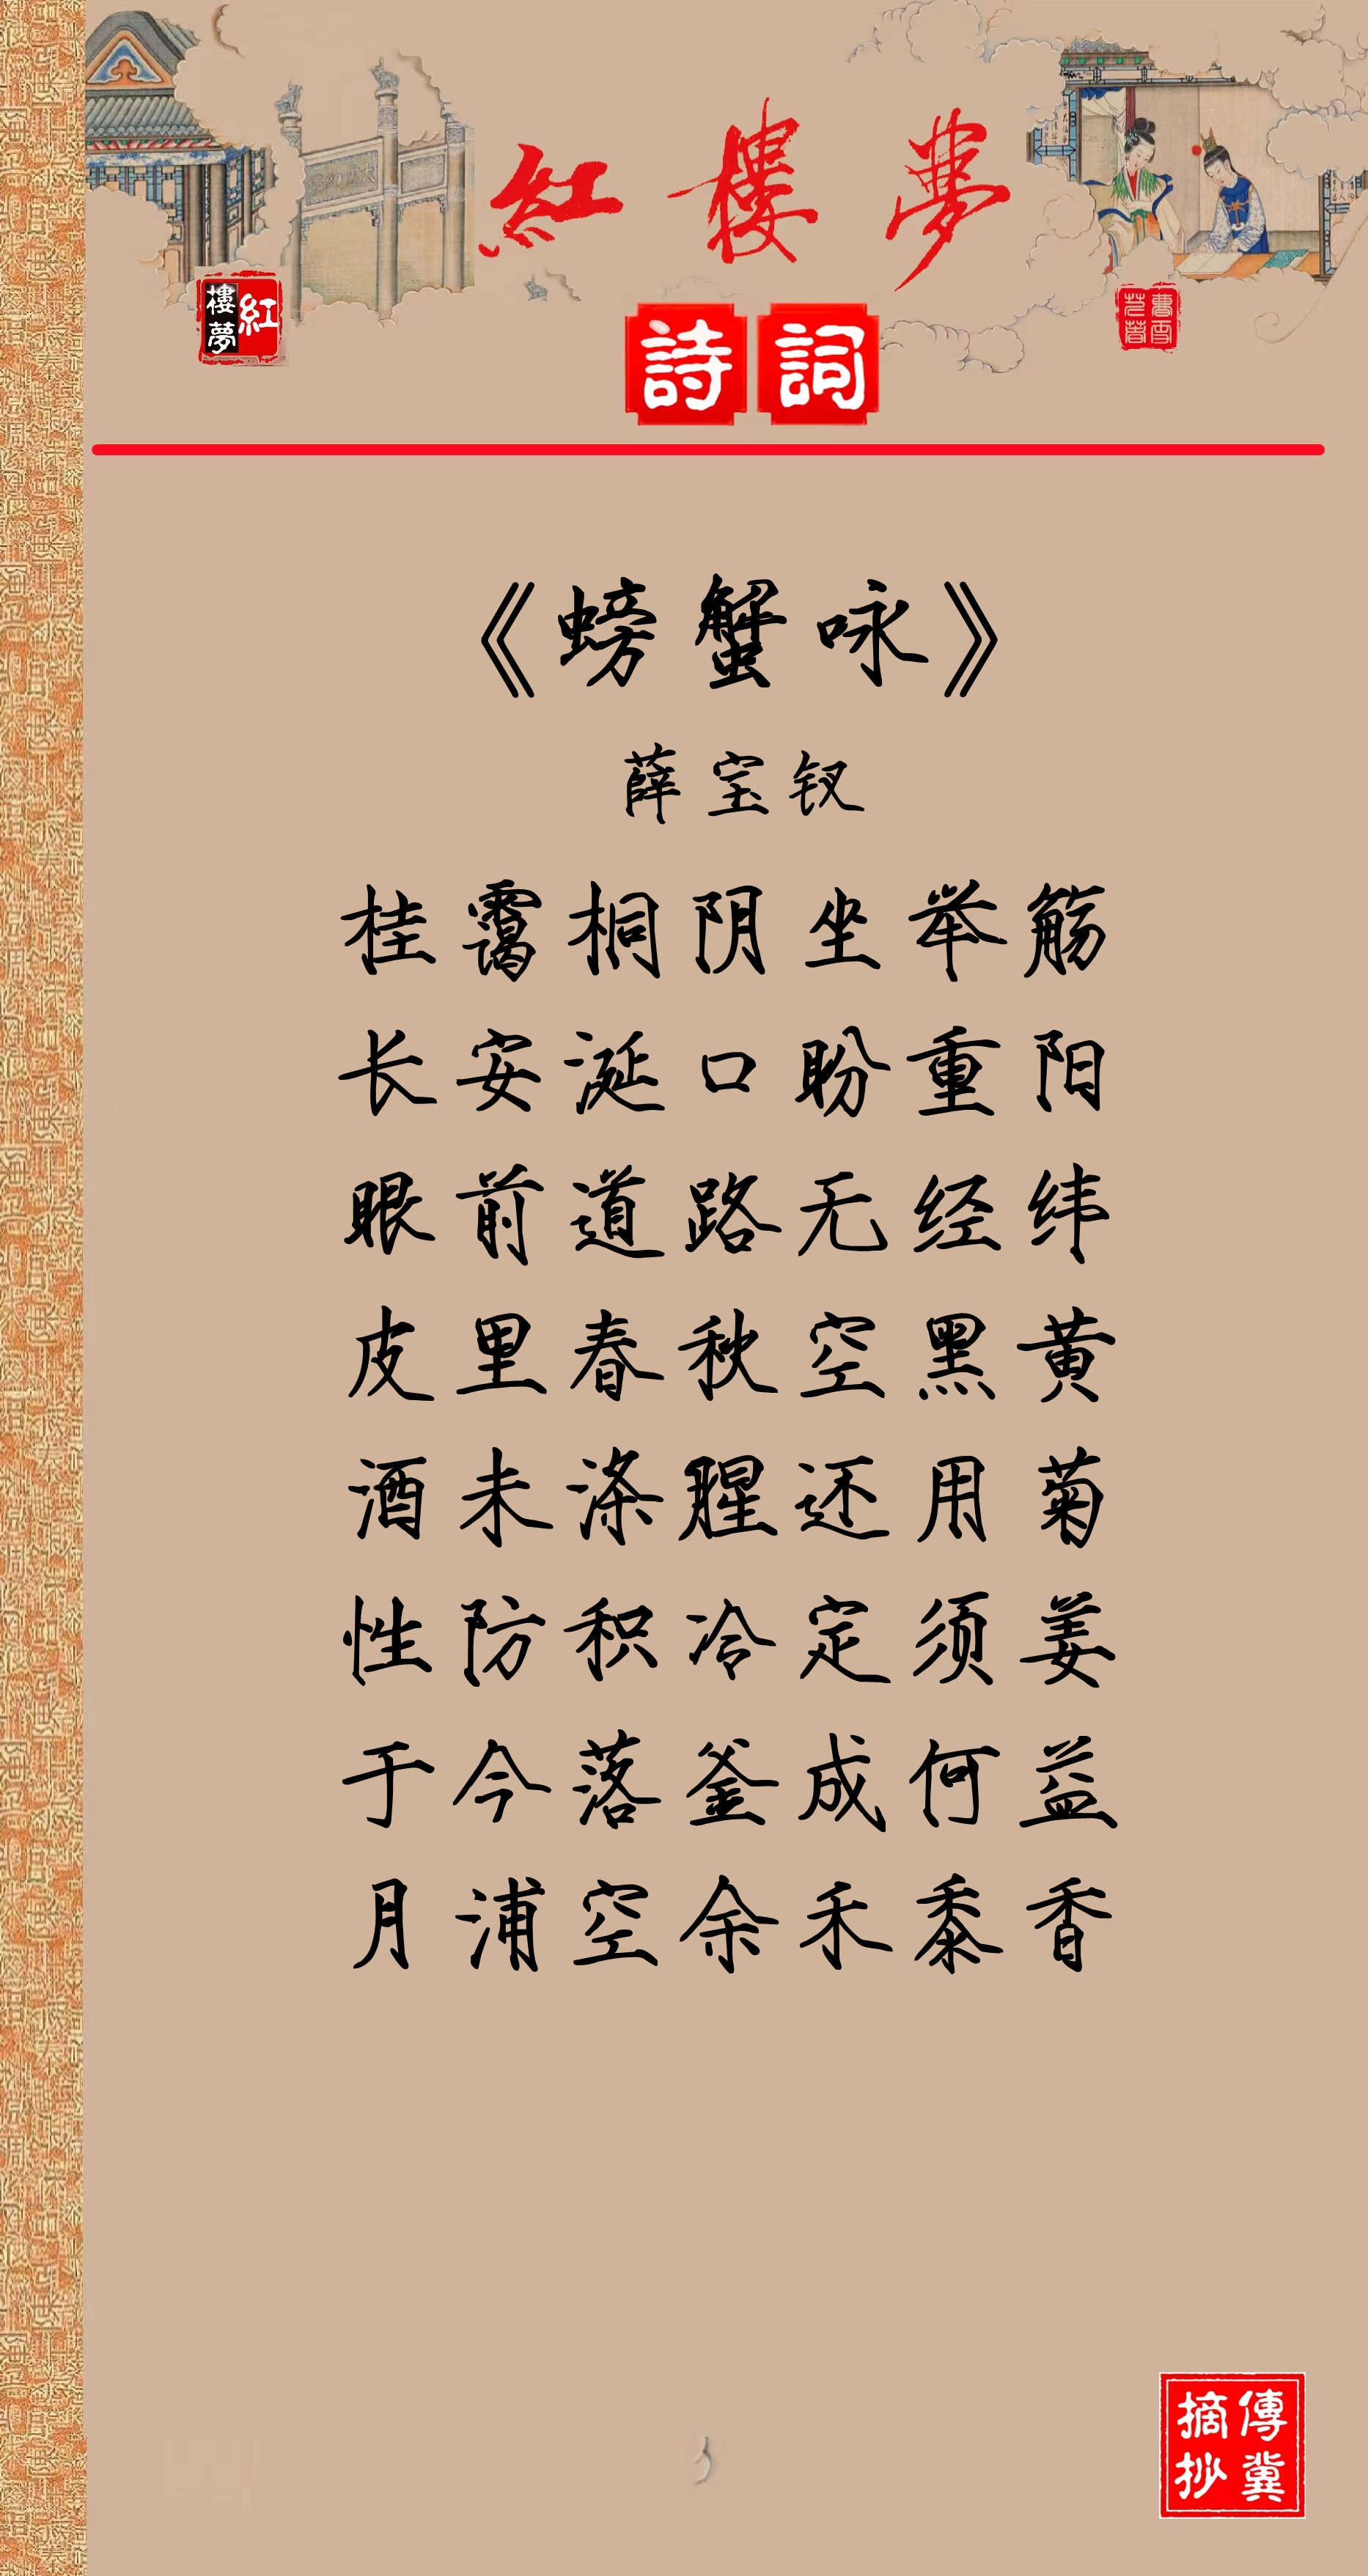 紅樓夢
紅樓夢
曹雪芹著
詩詞
《螃蟹咏》
薛宝钗
桂霭桐阴坐举觞
长安涎口盼重阳
眼前道路无经纬
皮里春秋空黑黄
酒未涤腥还用菊
性防积冷定须姜
于今落釜成何益
月浦空余禾黍香
傳冀
摘抄